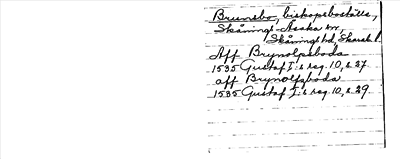 Brunsbo, biskopsboställe,
Skånings-Åsaka sn,
Skånings hd, Skarab. l.
Aff Brynolpsboda
1535 Gustaf I:s reg. 10, s. 27.
aff Brynolpsboda
1535 Gustaf I:s reg. 10, s. 29.